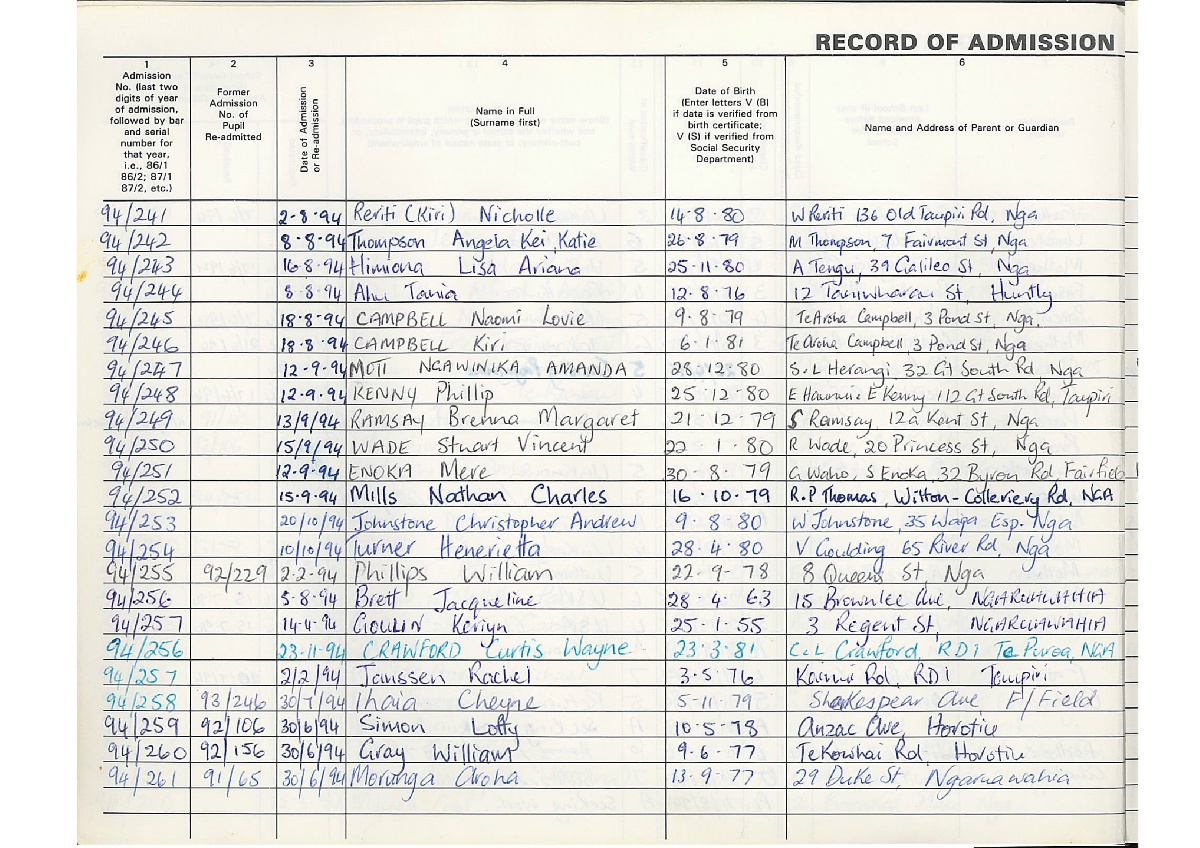 RECORD OF ADMISSION
1 2 3 4 5 6
Admission No. (last two digits of year of admission, followed by bar and serial number for that year, i.e., 86/1 86/2; 87/1 87/2, etc.)
Former Admission No. of Pupil Re-admitted
Date of Admission or Re-admission
Name in Full (Surname first)
Date of Birth (Enter letters V (B) if data is verified from birth certificate; V (S) if verified from Social Security Department)
Name and Address of Parent or Guardian
94/241 2-8-94 Reriti (Kiri) Nicholle 14-8-80 W Reriti 136 Old Taupiri Rd, Nga
94/242 8-8-94 Thompson Angela Kei, Katie 26-8-79 M Thompson, 7 Fairmont St, Nga
94/243 16-8-94 Himiona Lisa Ariana 25-11-80 A Tengu, 39 Galileo St, Nga
94/244 8-8-94 Ahu Tania 12-8-76 12 St, Huntly
94/245 18-8-94 CAMPBELL Naomi Lovie 9-8-79 TeAroha Campbell, 3 Pond St, Nga.
94/246 18-8-94 CAMPBELL Kiri 6-1-81 TeAroha Campbell, 3 Pond St, Nga
94/247 12-9-94 MOTI NGAWINIKA AMANDA 28-12-80 S.L Herangi, 32 Gt South Rd, Nga
94/248 12-9-94 KENNY Phillip 25-12-80 E Kenny 112 Gt South Rd, Taupiri
94/249 13/9/94 RAMSAY Brenna Margaret 21-12-79 S Ramsay, 12a Kent St, Nga
94/250 15/9/94 WADE Stuart Vincent 22-1-80 R Wade, 20 Princess St, Nga
94/251 12-9-94 ENOKA Mere 30-8-79 G Waho, S Enoka, 32 Byron Rd Fairfield
94/252 15-9-94 Mills Nathan Charles 16-10-79 R.P Thomas, Wilton-Colleriery Rd, NGA
94/253 20/10/94 Johnstone Christopher Andrew 9-8-80 W Johnstone, 35 Waipa Esp. Nga
94/254 10/10/94 Turner Henerietta 28-4-80 V Goulding 65 River Rd, Nga
94/255 92/229 2-2-94 Phillips William 22-9-78 8 Queens St, Nga
94/256 5-8-94 Brett Jacqueline 28-4-63 15 Brownlee Ave, NGARUAWAHIA
94/257 14-4-94 GOULIN Keriyn 25-1-55 3 Regent St, NGARUAWAHIA
94/256 23-11-94 CRAWFORD Curtis Wayne 23-3-81 C.L Crawford, RD1 Te Puroa, NGA
94/257 2/2/94 Janssen Rachel 3-5-76 Kainui Rd, RD1 Taupiri
94/258 93/246 30/7/94 Ihaia Cheyne 5-11-79 Shakespear Ave F/Field
94/259 92/106 30/6/94 Simon Lofty 10-5-78 Anzac Ave, Horotiu
94/260 92/156 30/6/94 Gray William 9-6-77 TeKowhai Rd, Horotiu
94/261 91/65 30/6/94 Morunga Aroha 13-9-77 29 Duke St, Ngaruawahia